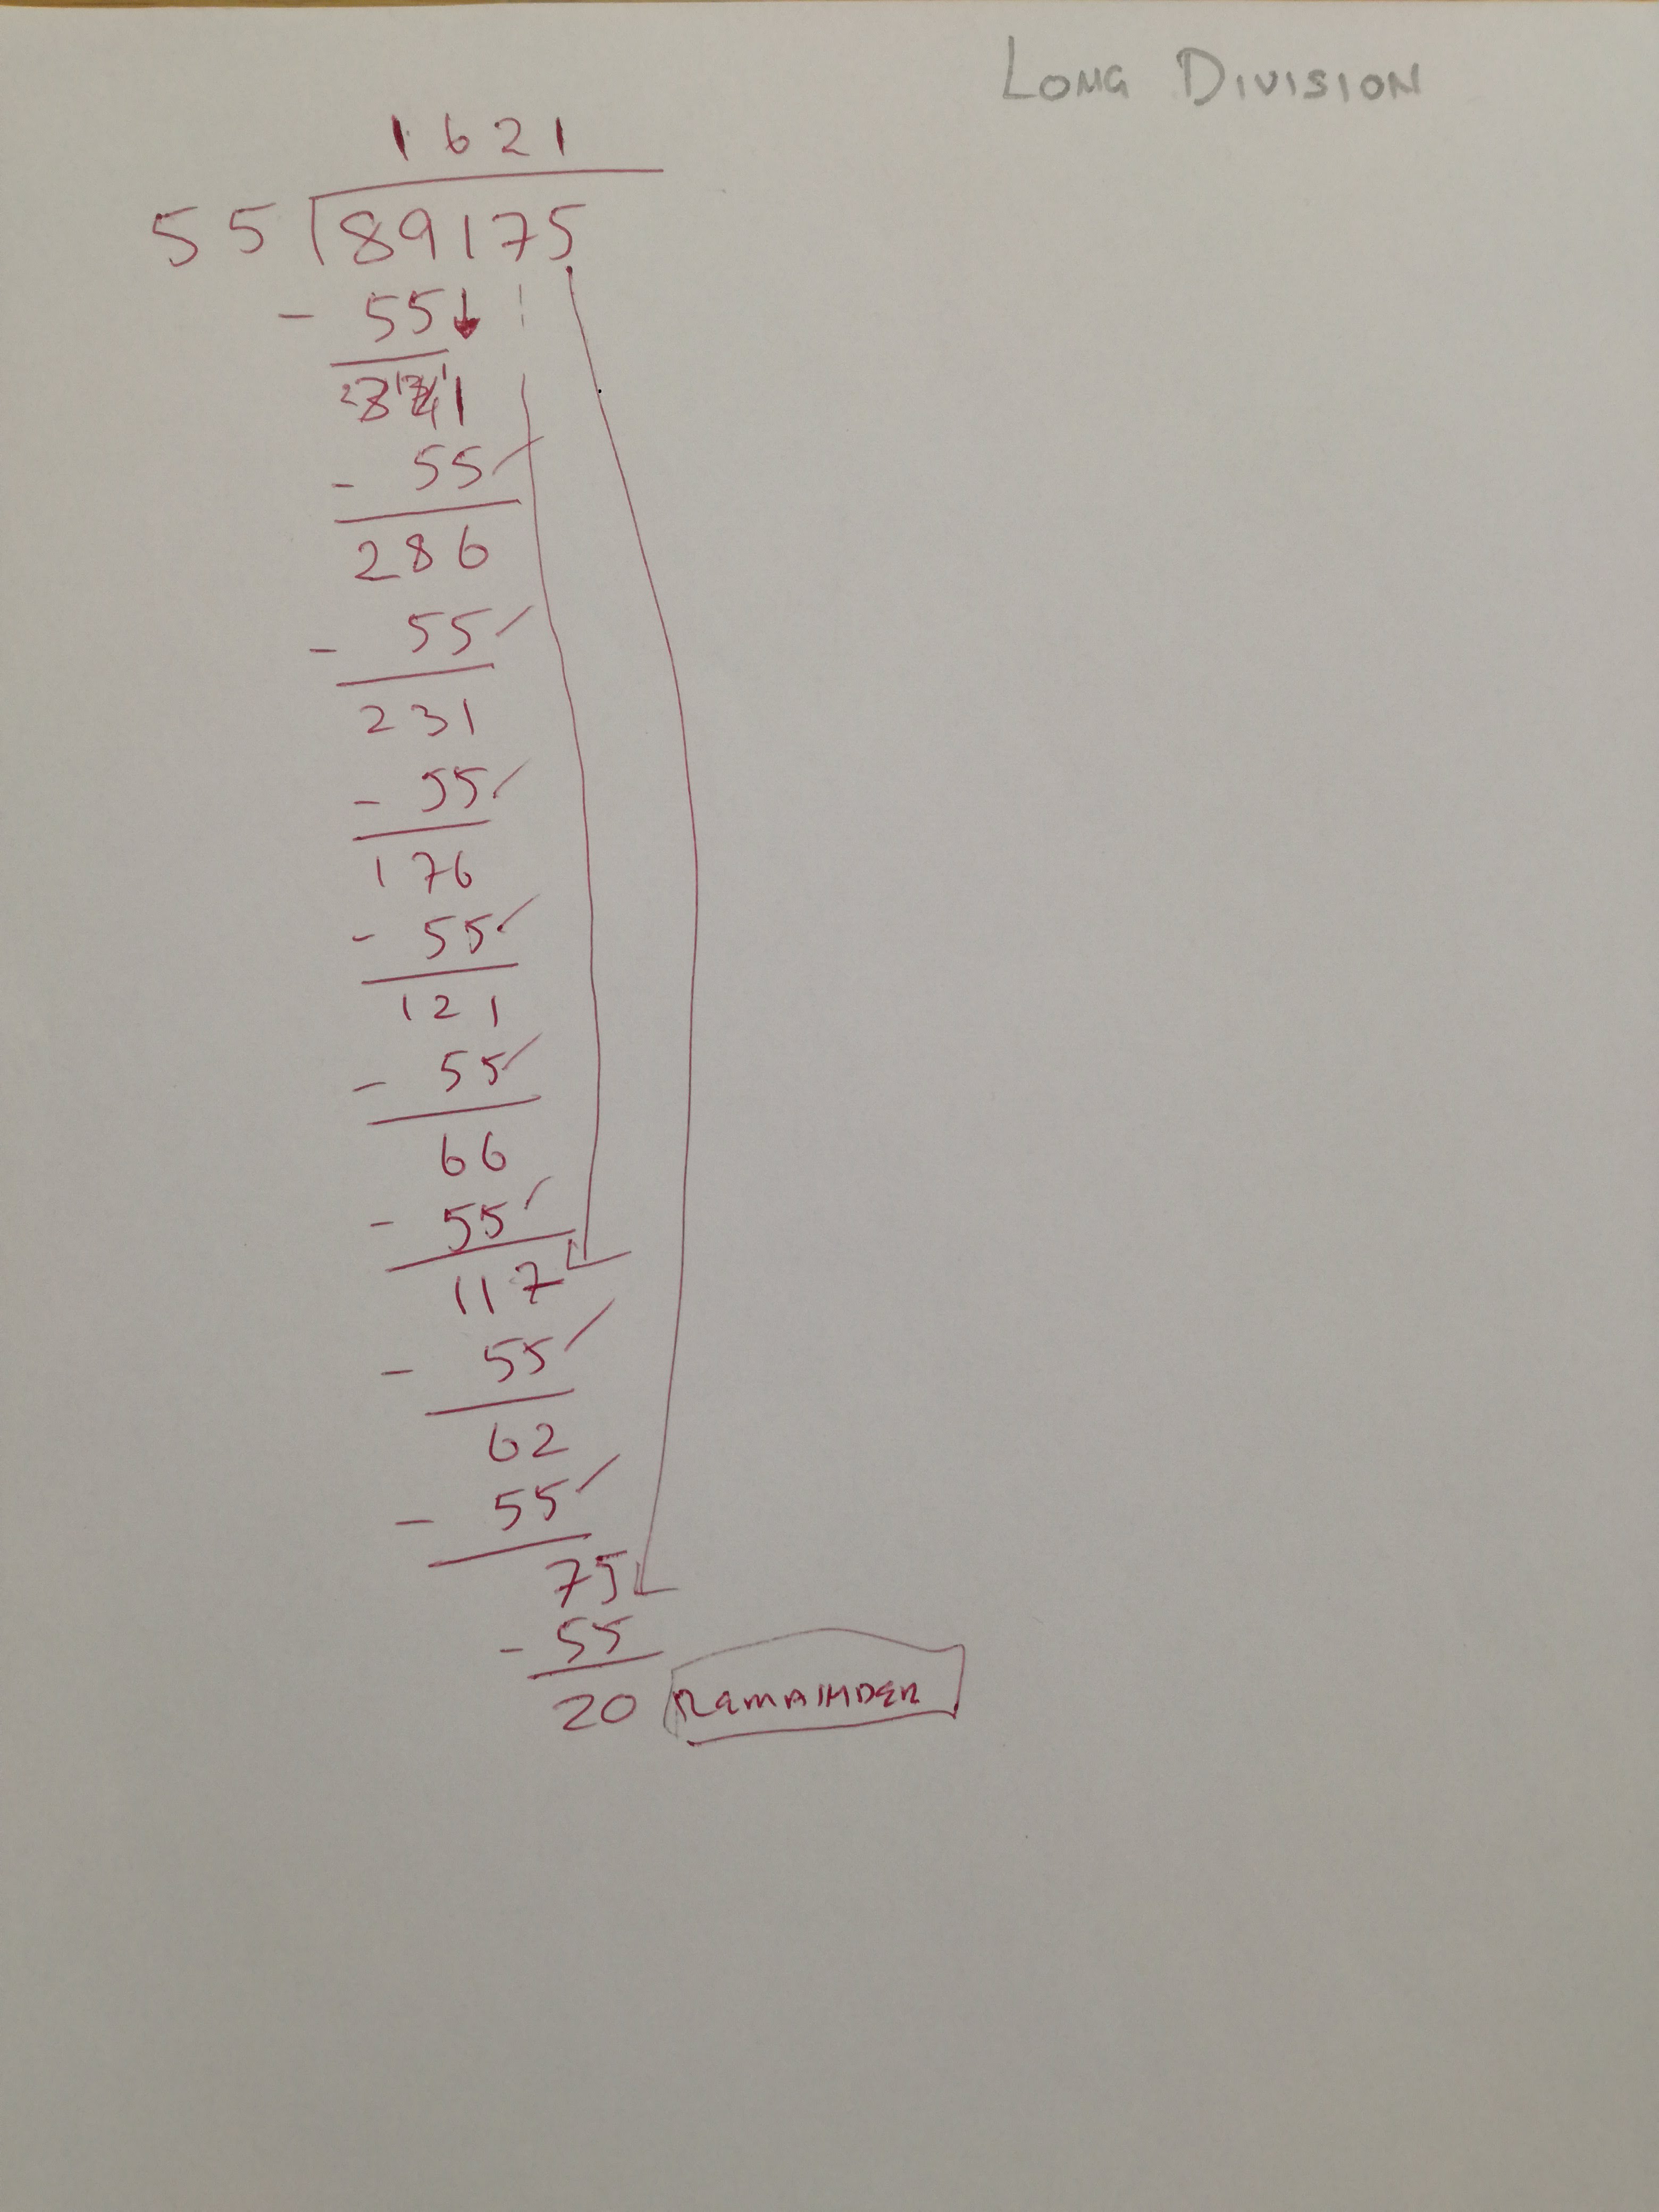 LONG DIVISION
1621
55 89175
- 55
341
- 55
286
- 55
231
- 55
176
- 55
121
- 55
66
- 55
117
- 55
62
- 55
75
- 55
20 REMAINDER